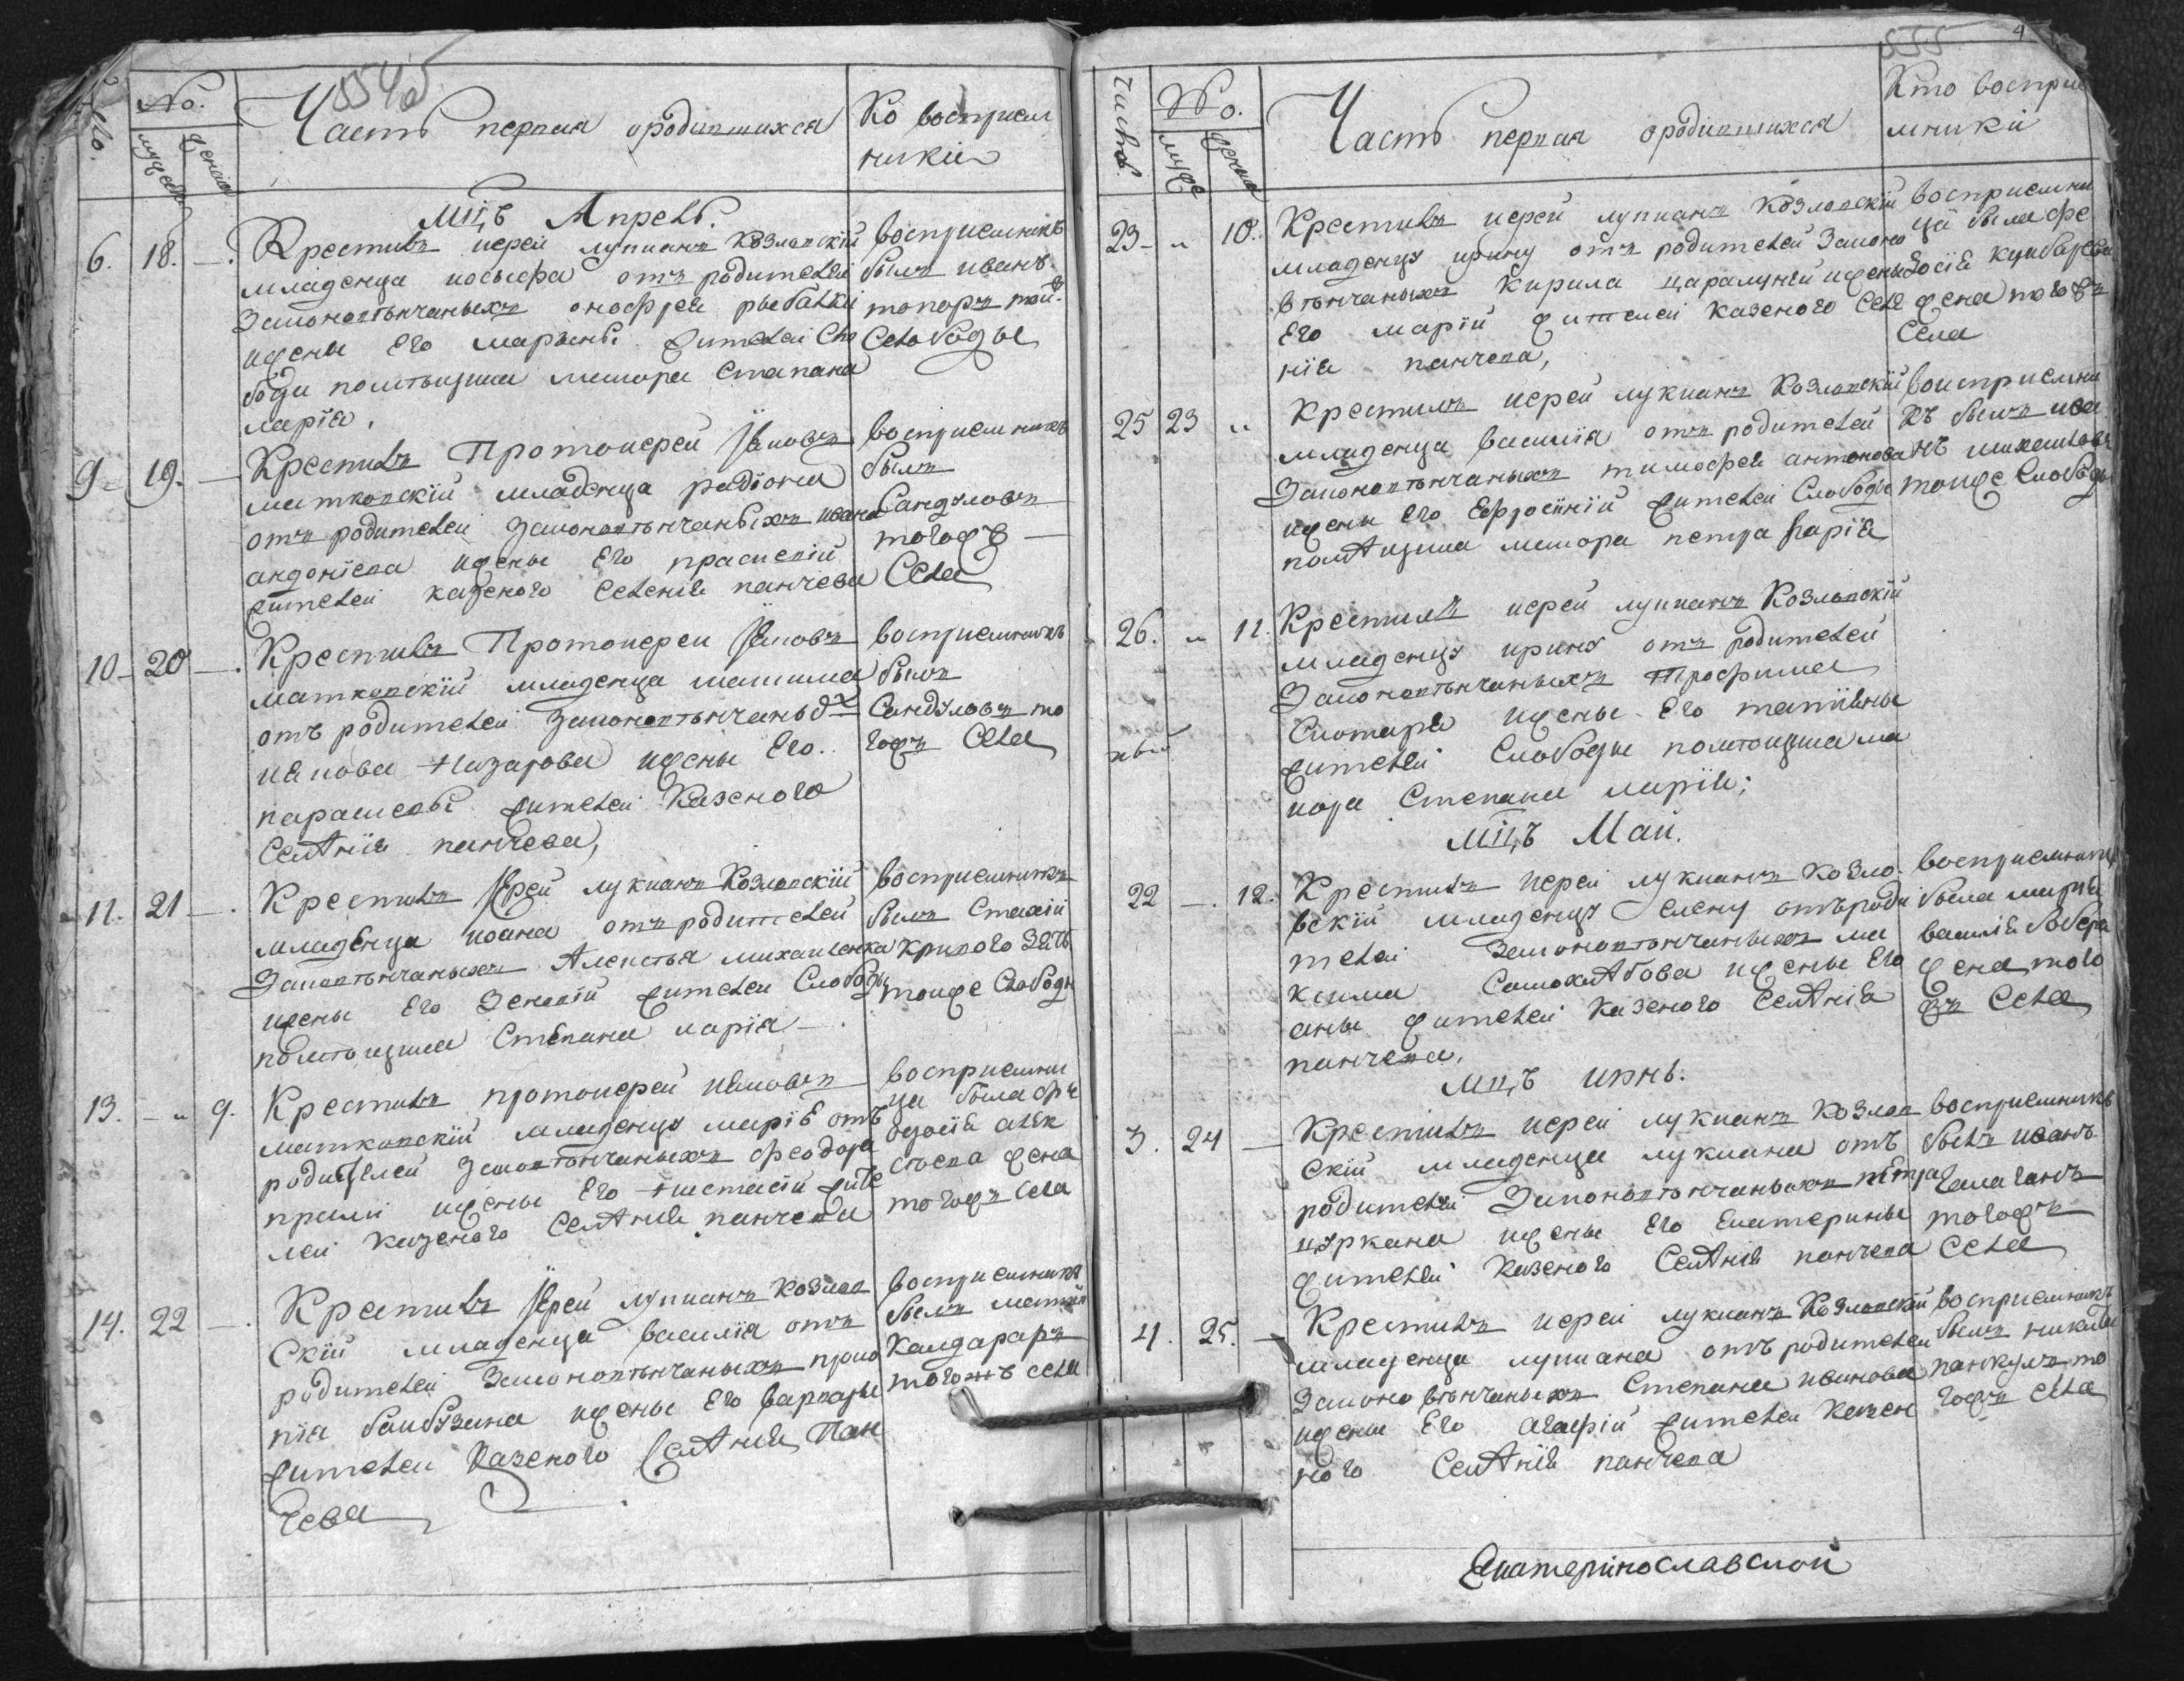 5545
Число.
No.
мужеска
женска
Часть первая о родившихся
Ко восприем
ники
Мц,ъ Апрель.
6. 18. —. Крестилъ иерей лукианъ Козловскій
младенца иосыфа отъ родителей
Законовѣнчаныхъ онофрея рыбалки
ижены Его марыны жителей Сло
боды помѣщика маиора Стапана
ларія.
восприемникъ
былъ иванъ
топоръ той
Слободы
9 — 19. — Крестилъ Протоиерей Иаковъ
матковскій младенца радіона
отъ родителей Законовѣнчаныхъ ивана
андониева ижены Его прасковій
жителей казеного Селенія панчева
восприемникъ
былъ
Сандуловъ
тогожъ —
Села
10 — 20 —. Крестилъ Протоиереи Иаковъ
матковскій младенца
отъ родителей
иакова Назарова ижены Его
параскевы жителей Казеного
Селѣнія панчева,
восприемникъ
былъ
Сандуловъ то
гожъ Села
11. 21 —. Крестилъ Иерей лукианъ Козловскій
младенца иоана отъ родителей
Алексѣя михаиленка
ижены Его Зеновій жителей Слободы
помѣщика Степана ларія —.
восприемникъ
былъ
кривого зять
тоиже Слободы
13. — „ 9. Крестилъ протоиерей иаковъ
матковскій младенцу марію отъ
родителей феодора
ижены Его настасій жите
лей казеного Селѣнія панчева
восприемни
ца была
жена
тогожъ Села
14. 22 —. Крестилъ Иерей лукианъ Козлов
скій младенца василія отъ
родителей Законовѣнчаныхъ проко
пія ижены Его варвары
жителей Казеного Селѣнія Пан
чева
восприемникъ
былъ матвей
Калдараръ
тогожъ села
555
4
число.
No.
муже
женска
Часть первая о родившихся
Кто восприе
мники
23 — „ 10. Крестилъ иерей лукианъ Козловскій
младенцу ирину отъ родителей Законо
вѣнчаныхъ Кирила ижены
Его марій жителей казеного Селе
нія панчева,
восприемни
ца была фе
досія
жена тогожъ
Села
25 23 „ Крестилъ иерей лукианъ Козловскій
младенца василія отъ родителей
Законовѣнчаныхъ тимофея антонова
ижены Его Ефросиній жителей Слободы
помѣщика маиора петра ларія
воисприемни
къ былъ ива
нъ
тоиже Слободы
26. „ 11. Крестилъ иерей лукианъ Козловскій
младенцу ирину отъ родителей
Законовѣнчаныхъ Трофима
Слотаря ижены Его татіяны
жителей Слободы помѣщика ма
иора Степана ларія;
Мц,ъ Май.
22 —. 12. Крестилъ Иерей лукианъ козло
вскій младенцу Елену отъ роди
телей Законовѣнчаныхъ ма
ксима ижены Его
аны жителей казеного Селѣнія
панчева.
восприемница
была марія
василія
жена того
жъ Села
Мц,ъ июнь.
3. 24 — Крестилъ иерей лукианъ козлов
скій младенца лукиана отъ
родителей Законовѣнчаныхъ петра
цуркана ижены Его Екатерины
жителей казеного Селѣнія панчева
восприемникъ
былъ иванъ
галаганъ
тогожъ
Села
4. 25. — Крестилъ иерей лукианъ Козловскій
младенца лукиана отъ родителей
Законовѣнчаныхъ Степана иванова
ижены Его агафій жителей казен
ного Селѣнія панчева
восприемникъ
былъ никита
панкулъ то
гожъ села
Екатеринославской